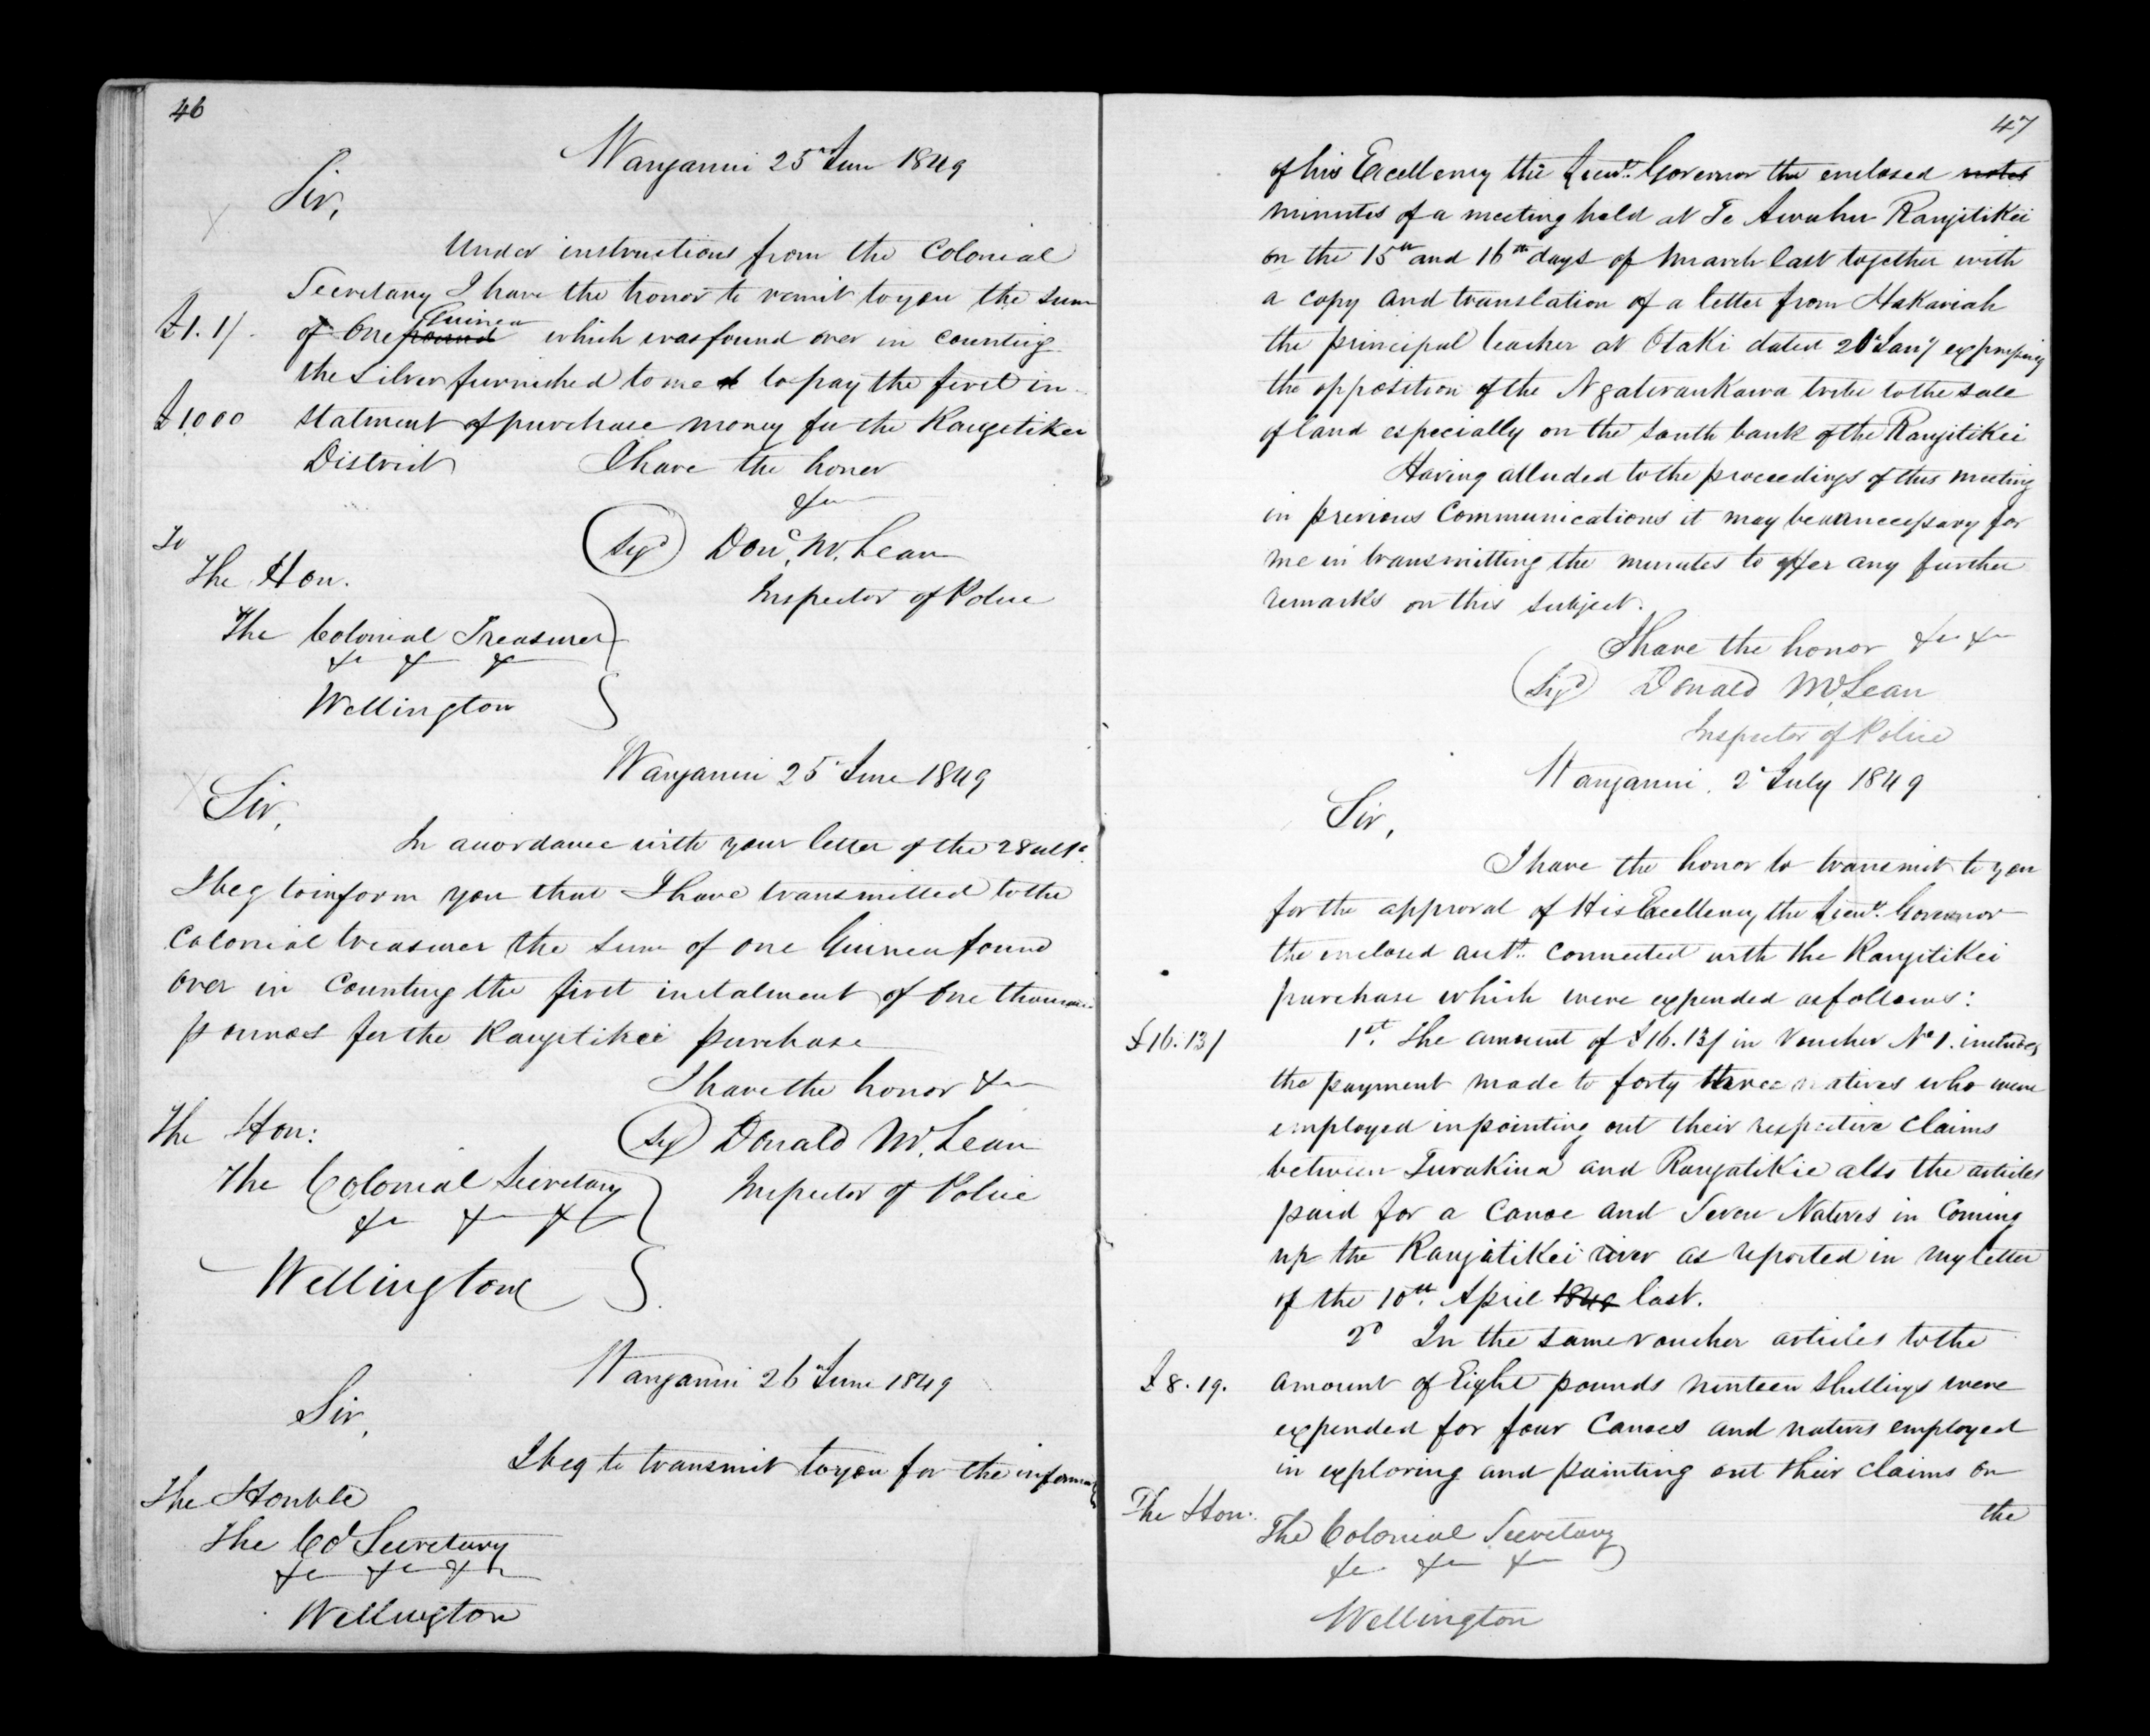 46
Wanganui 25 June 1849
Sir,
Under instructions from the Colonial
Secretary I have the honor to remit to you the sum
£1.1/. of One pound Guinea which was found over in counting
the Silver furnished to me to pay the first in
£1000 statment of purchase money for the Rangitikei
District I have the honor
&c
(Sigd) Dond. McLean
Inspector of Police
To
The Hon.
The Colonial Treasurer
&c &c &c
Wellington
Wanganui 25 June 1849
Sir,
In accordance with your letter of the 28 ulto.
I beg to inform you that I have transmitted to the
Colonial treasurer the Sum of one Guinea found
over in Counting the first instalment of One thousand
pounds for the Rangitikei purchase
I have the honor &c
(Sigd) Donald McLean
Inspector of Police
The Hon:
The Colonial Secretary
&c &c &c
Wellington
Wanganui 26 June 1849
Sir,
I beg to transmit to you for the information
The Honble
The Col Secretary
&c &c &c
Wellington
47
of his Excellency the Lieut. Governor the enclosed notes
minutes of a meeting held at Te Awahu Rangitikei
on the 15th and 16th days of March last together with
a copy and translation of a letter from Hakariah
the principal teacher at Otaki dated 20 Jany expressing
the opposition of the Ngatiraukawa tribe to the sale
of land especially on the South bank of the Rangitikei
Having alluded to the proceedings of this meeting
in previous Communications it may be unnecessary for
me in transmitting the minutes to offer any further
remarks on this subject.
I have the honor &c &c
(Sigd) Donald McLean
Inspector of Police
Wanganui. 2 July 1849
Sir,
I have the honor to transmit to you
for the approval of His Excellency the Lieut. Governor
the enclosed acct. connected with the Rangitikei
purchase which were expended as follows:
£16.13/ 1st. The amount of £16.13/ in Voucher No 1. includes
the payment made to forty three natives who were
employed in pointing out their respective claims
between Turakina and Rangatikie also the articles
paid for a Canoe and Seven Natives in Coming
up the Rangatikei river as reported in my letter
of the 10th. April 1849 last.
2d In the same voucher articles to the
£8.19. amount of Eight pounds ninteen Shillings were
expended for four Canoes and natives employed
in exploring and pointing out their claims on
the
The Hon.
The Colonial Secretary
&c &c &c
Wellington